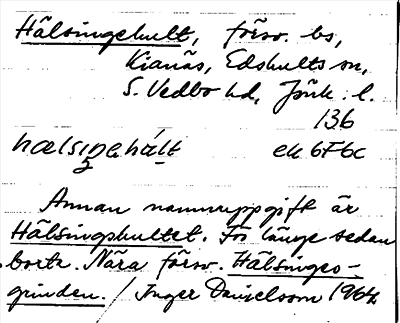 Hälsingehult, försv. bs,
Kianäs, Edshults sn,
S. Vedbo hd, Jönk. l.
136
hælsiŋahúlt ek 6F6c
Annan namnuppgift är
Hälsingshultet. För länge sedan
borta. Nära försv. Hälsinges-
grinden. / Inger Danielsson 1964